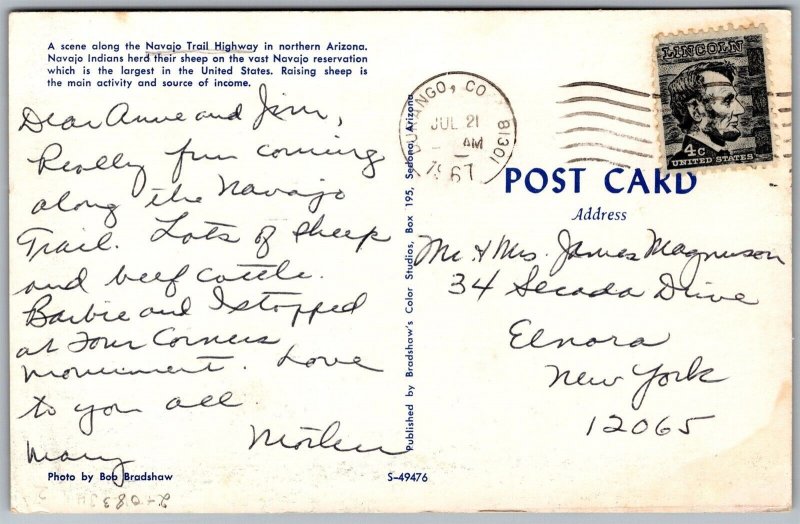 A scene along the Navajo Trail Highway in northern Arizona.
Navajo Indians herd their sheep on the vast Navajo reservation
which is the largest in the United States. Raising sheep is
the main activity and source of income.
Dear Anne and Jim,
Really fun coming
along the Navajo
Trail. Lots of sheep
and beef cattle.
Barbie and I stopped
at Four Corners
monument. Love
to you all.
Mother
Mary
Photo by Bob Bradshaw
S-49476
Published by Bradshaw's Color Studios, Box 195, Sedona, Arizona
DURANGO, CO 81301
JUL 21
AM
1967
LINCOLN
4c
UNITED STATES
POST CARD
Address
Mr. & Mrs. James Magnuson
34 Secada Drive
Elnora
New York
12065